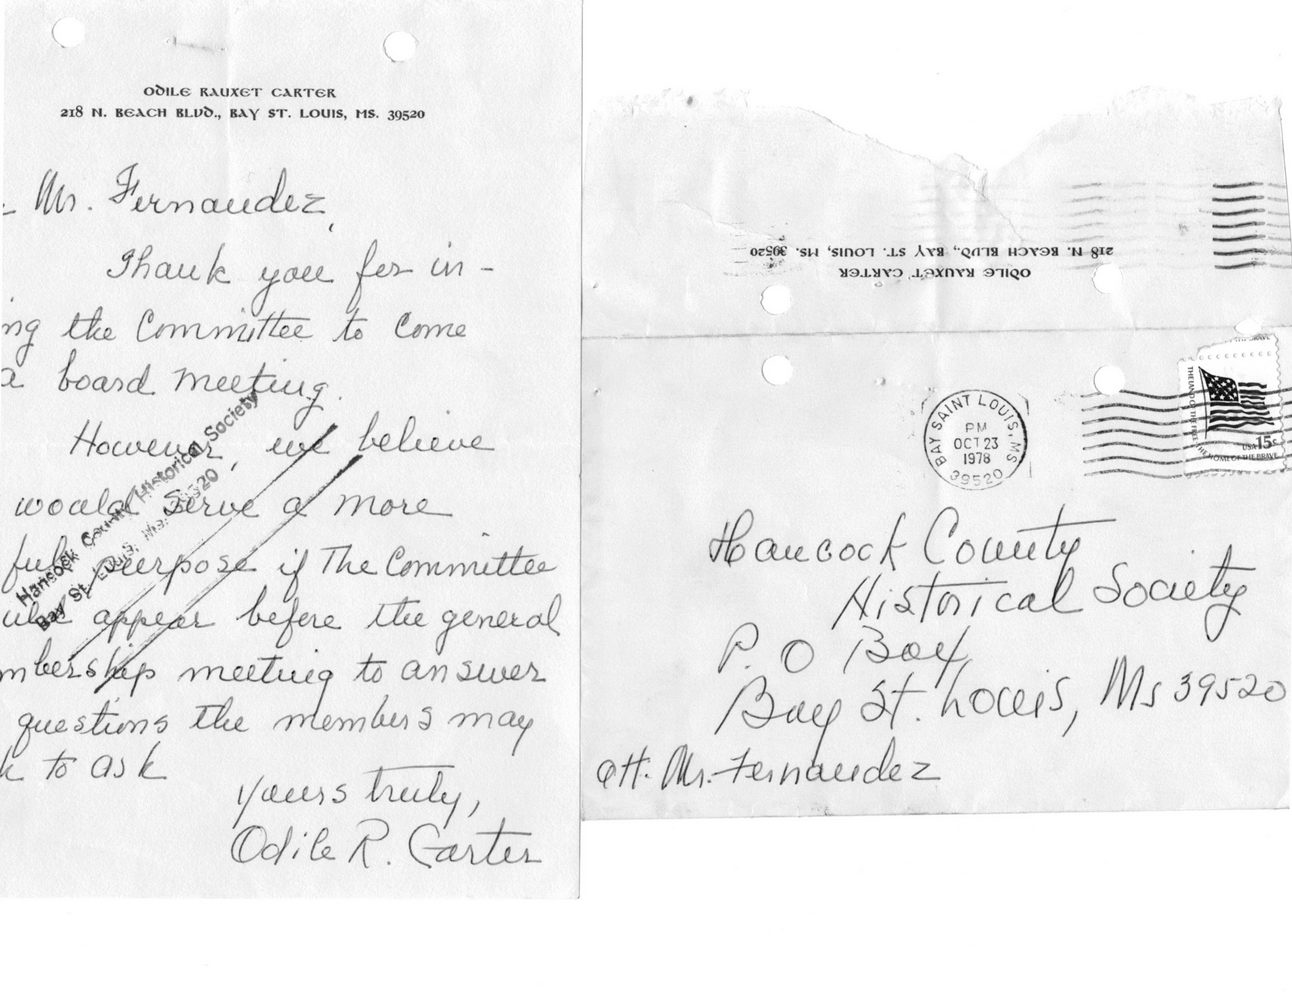 ODILE RAUXET CARTER
218 N. BEACH BLVD., BAY ST. LOUIS, MS. 39520
Mr. Fernandez,
Thank you for in-
ng the Committee to come
a board meeting.
However, we believe
would serve a more
ful purpose if The Committee
uld appear before the general
mbership meeting to answer
questions the members may
k to ask
Yours truly,
Odile R. Carter
Hancock County Historical Society
Bay St. Louis, Ms. 39520
218 N. BEACH BLVD., BAY ST. LOUIS, MS. 39520
ODILE RAUXET CARTER
BAY SAINT LOUIS, MS
PM
OCT 23
1978
39520
THE LAND OF THE FREE
USA 15c
THE HOME OF THE BRAVE
Hancock County
Historical Society
P. O Box
Bay St. Louis, Ms 39520
att. Mr. Fernandez